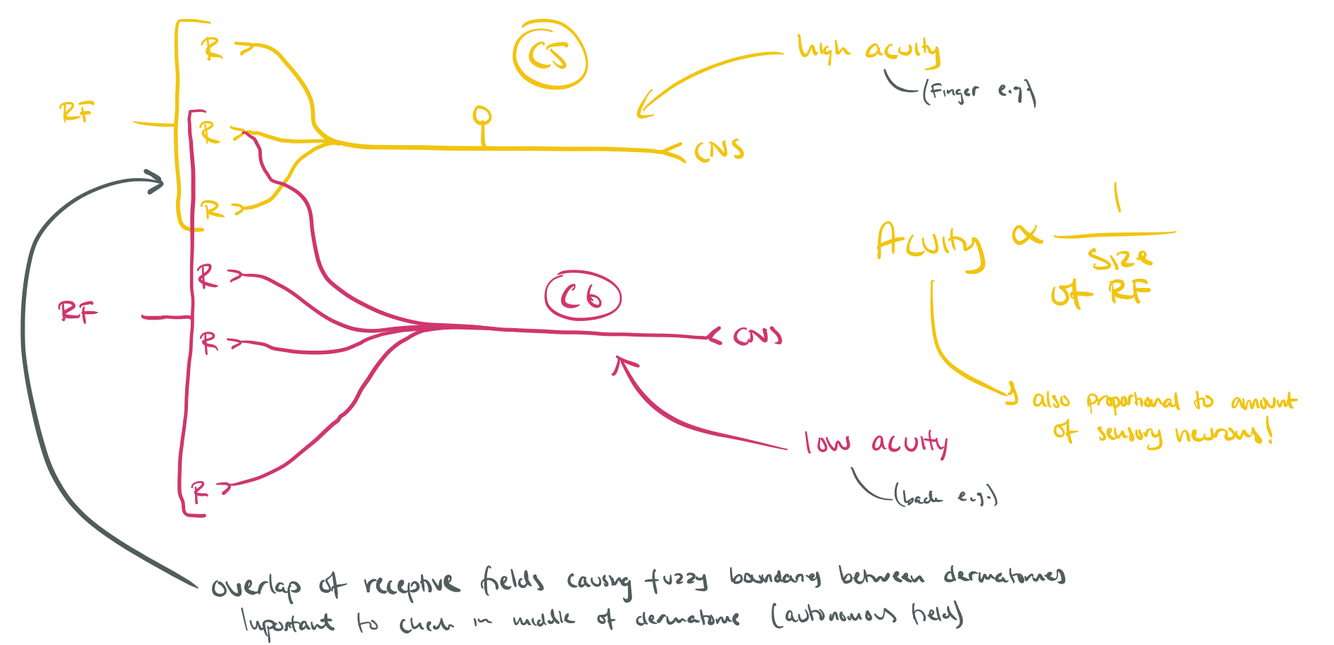 R
C5
high acuity
(Finger e.g.)
RF
R
CNS
R
Acuity ∝ 1
Size
of RF
R
C6
RF
R
CNS
also proportional to amount
of sensory neurons!
low acuity
(back e.g.)
R
overlap of receptive fields causing fuzzy boundaries between dermatomes
Important to check in middle of dermatome (autonomous field)